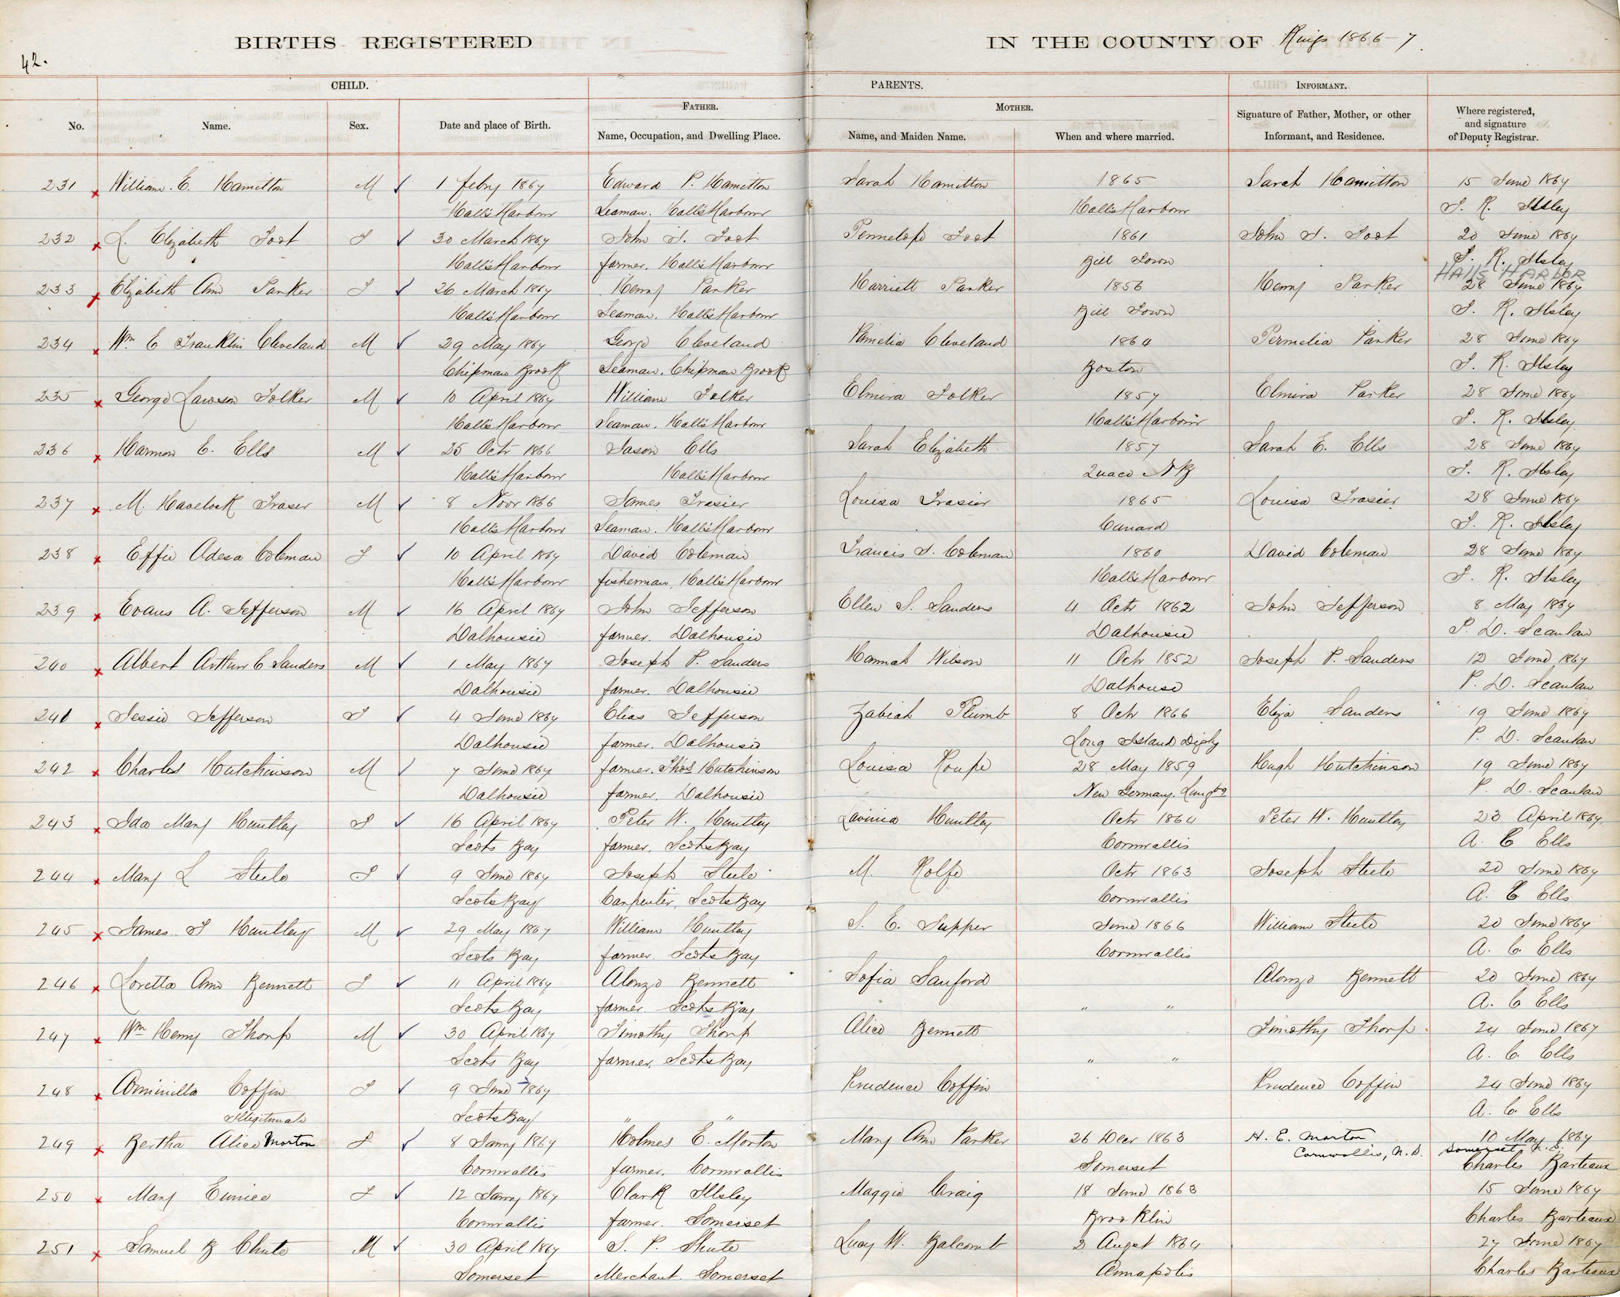 42.
BIRTHS REGISTERED IN THE COUNTY OF Kings 1866-7.
CHILD. PARENTS. INFORMANT.
FATHER. MOTHER.
No. Name. Sex. Date and place of Birth. Name, Occupation, and Dwelling Place. Name, and Maiden Name. When and where married. Signature of Father, Mother, or other Informant, and Residence. Where registered, and signature of Deputy Registrar.
231 William E. Hamilton M 1 Feby 1867 Edward P. Hamilton Sarah Hamilton 1865 Sarah Hamilton 15 June 1867
Halls Harbour Seaman. Halls Harbour Halls Harbour S. R. Ilsley
232 L. Elizabeth Foot F 30 March 1867 John S. Foot Pennelope Foot 1861 John S. Foot 20 June 1867
Halls Harbour farmer. Halls Harbour Bill Town S. R. Ilsley
HALLS HARBOR
233 Elizabeth Ann Parker F 26 March 1867 Henry Parker Harriett Parker 1856 Henry Parker 28 June 1867
Halls Harbour Seaman. Halls Harbour Bill Town S. R. Ilsley
234 Wm E Franklin Cleveland M 29 May 1867 George Cleveland Pamelia Cleveland 1864 Permelia Parker 28 June 1867
Chipman Brook Seaman. Chipman Brook Boston S. R. Ilsley
235 George Lawson Folker M 10 April 1867 William Folker Elmira Folker 1857 Elmira Parker 28 June 1867
Halls Harbour Seaman. Halls Harbour Halls Harbour S. R. Ilsley
236 Harmon E. Ells M 25 Octr 1866 Jason Ells Sarah Elizabeth 1857 Sarah E. Ells 28 June 1867
Halls Harbour Halls Harbour Quaco NB S. R. Ilsley
237 M. Havelock Fraser M 8 Novr 1866 James Frasier Louisa Frasier 1865 Louisa Frasier 28 June 1867
Halls Harbour Seaman. Halls Harbour Cunard S. R. Ilsley
238 Effie Adesa Coleman F 10 April 1867 David Coleman Francis S. Coleman 1860 David Coleman 28 June 1867
Halls Harbour fisherman. Halls Harbour Halls Harbour S. R. Ilsley
239 Evans A. Jefferson M 16 April 1867 John Jefferson Ellen S. Sanders 4 Octr 1862 John Jefferson 8 May 1867
Dalhousie farmer. Dalhousie Dalhousie P. D. Scanlan
240 Albert Arthur C Sanders M 1 May 1867 Joseph P. Sanders Hannah Wilson 11 Octr 1852 Joseph P. Sanders 12 June 1867
Dalhousie farmer. Dalhousie Dalhouse P. D. Scanlan
241 Jessie Jefferson F 4 June 1867 Elias Jefferson Zabiah Plumb 8 Octr 1866 Eliza Sanders 19 June 1867
Dalhousie farmer. Dalhousie Long Island Digby P. D. Scanlan
242 Charles Hutchinson M 7 June 1867 farmer. Thos Hutchinson Louisa Roupe 28 May 1859 Hugh Hutchinson 19 June 1867
Dalhousie farmer. Dalhousie New Germany. P. D. Scanlan
243 Ida Mary Huntley F 16 April 1867 Peter W. Huntley Lavinia Huntley Octr 1864 Peter W. Huntley 23 April 1867
Scots Bay farmer. Scots Bay Cornwallis A. C Ells
244 Mary L Steele F 9 June 1867 Joseph Steele M. Rolfe Octr 1863 Joseph Steele 20 June 1867
Scots Bay Carpenter. Scots Bay Cornwallis A. C Ells
245 James S Huntley M 29 May 1867 William Huntley S. E. Tupper June 1866 William Steele 20 June 1867
Scots Bay farmer. Scots Bay Cornwallis A. C Ells
246 Loretta Ann Bennett F 11 April 1867 Alonzo Bennett Sofia Sanford Alonzo Bennett 20 June 1867
Scots Bay farmer. Scots Bay " " A. C Ells
247 Wm Henry Thorp M 30 April 1867 Timothy Thorp Alice Bennett Timothy Thorp 24 June 1867
Scots Bay farmer. Scots Bay " " A. C. Ells
248 Coffin F 9 June 1867 Prudence Coffin Prudence Coffin 24 June 1867
Illegitimate Scots Bay " " A. C Ells
249 Bertha Alice Morton F 8 Jany 1867 Holmes E. Morton Mary Ann Parker 26 Decr 1863 H. E. Morton 10 May 1867
Cornwallis farmer. Cornwallis Somerset Cornwallis, N.S. Somerset, N.S. Charles Barteaux
250 Mary Eunice F 12 Jany 1867 Clark Ilsley Maggie Craig 18 June 1863 15 June 1867
Cornwallis farmer. Somerset Brooklin Charles Barteaux
251 Samuel B Chute M 30 April 1867 S. P. Shute Lucy W. Balcomb 2 Augst 1864 27 June 1867
Somerset Merchant. Somerset Annapolis Charles Barteaux